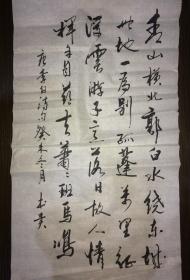 青山横北郭白水绕东城
此地一为别孤蓬万里征
浮云游子意落日故人情
挥手自兹去萧萧班马鸣
唐李白诗句癸未冬月